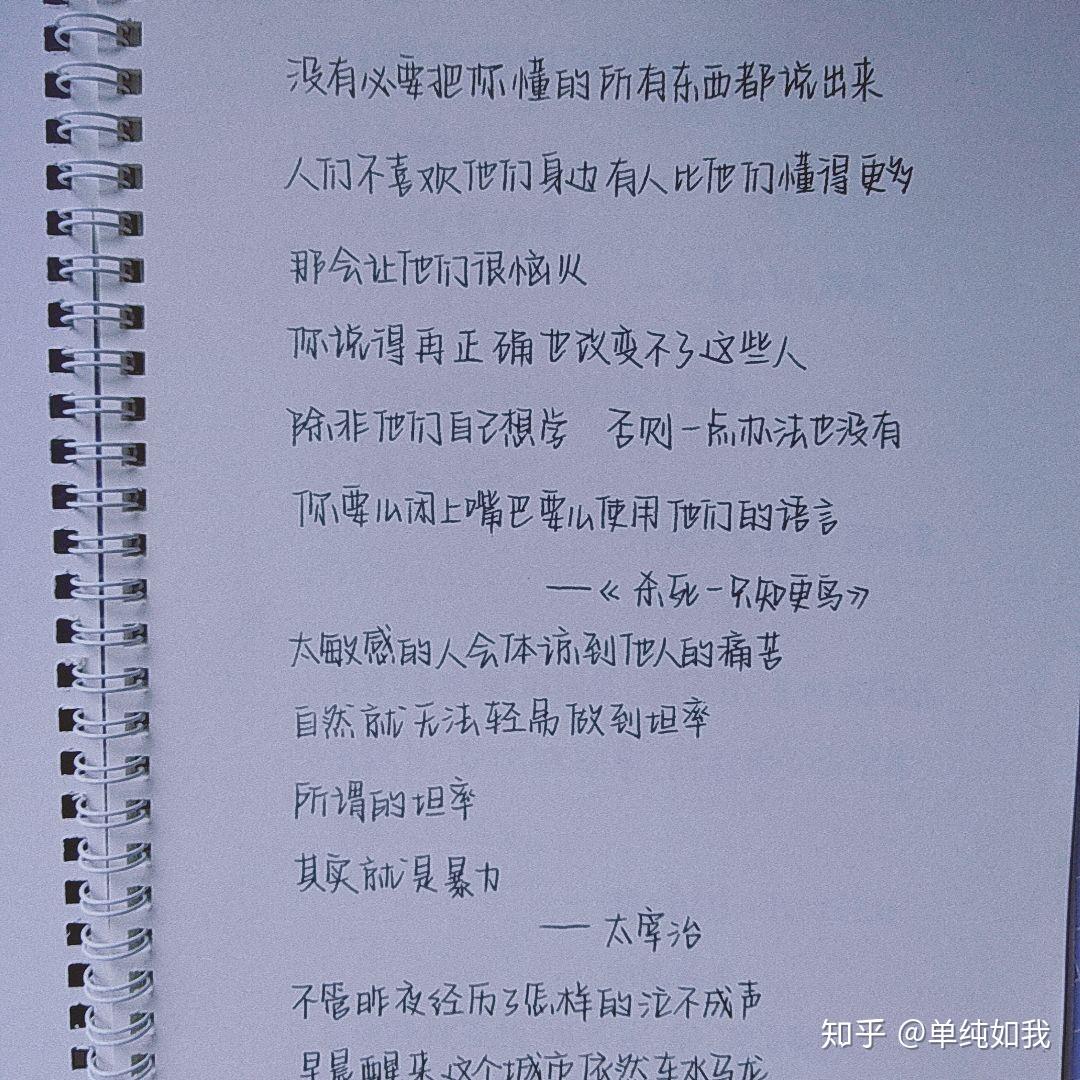 没有必要把你懂的所有东西都说出来
人们不喜欢他们身边有人比他们懂得更多
那会让他们很恼火
你说得再正确也改变不了这些人
除非他们自己想学 否则一点办法也没有
你要么闭上嘴巴要么使用他们的语言
——《杀死一只知更鸟》
太敏感的人会体谅到他人的痛苦
自然就无法轻易做到坦率
所谓的坦率
其实就是暴力
——太宰治
不管昨夜经历了怎样的泣不成声
早晨醒来这个城市依然车水马龙
知乎 @单纯如我